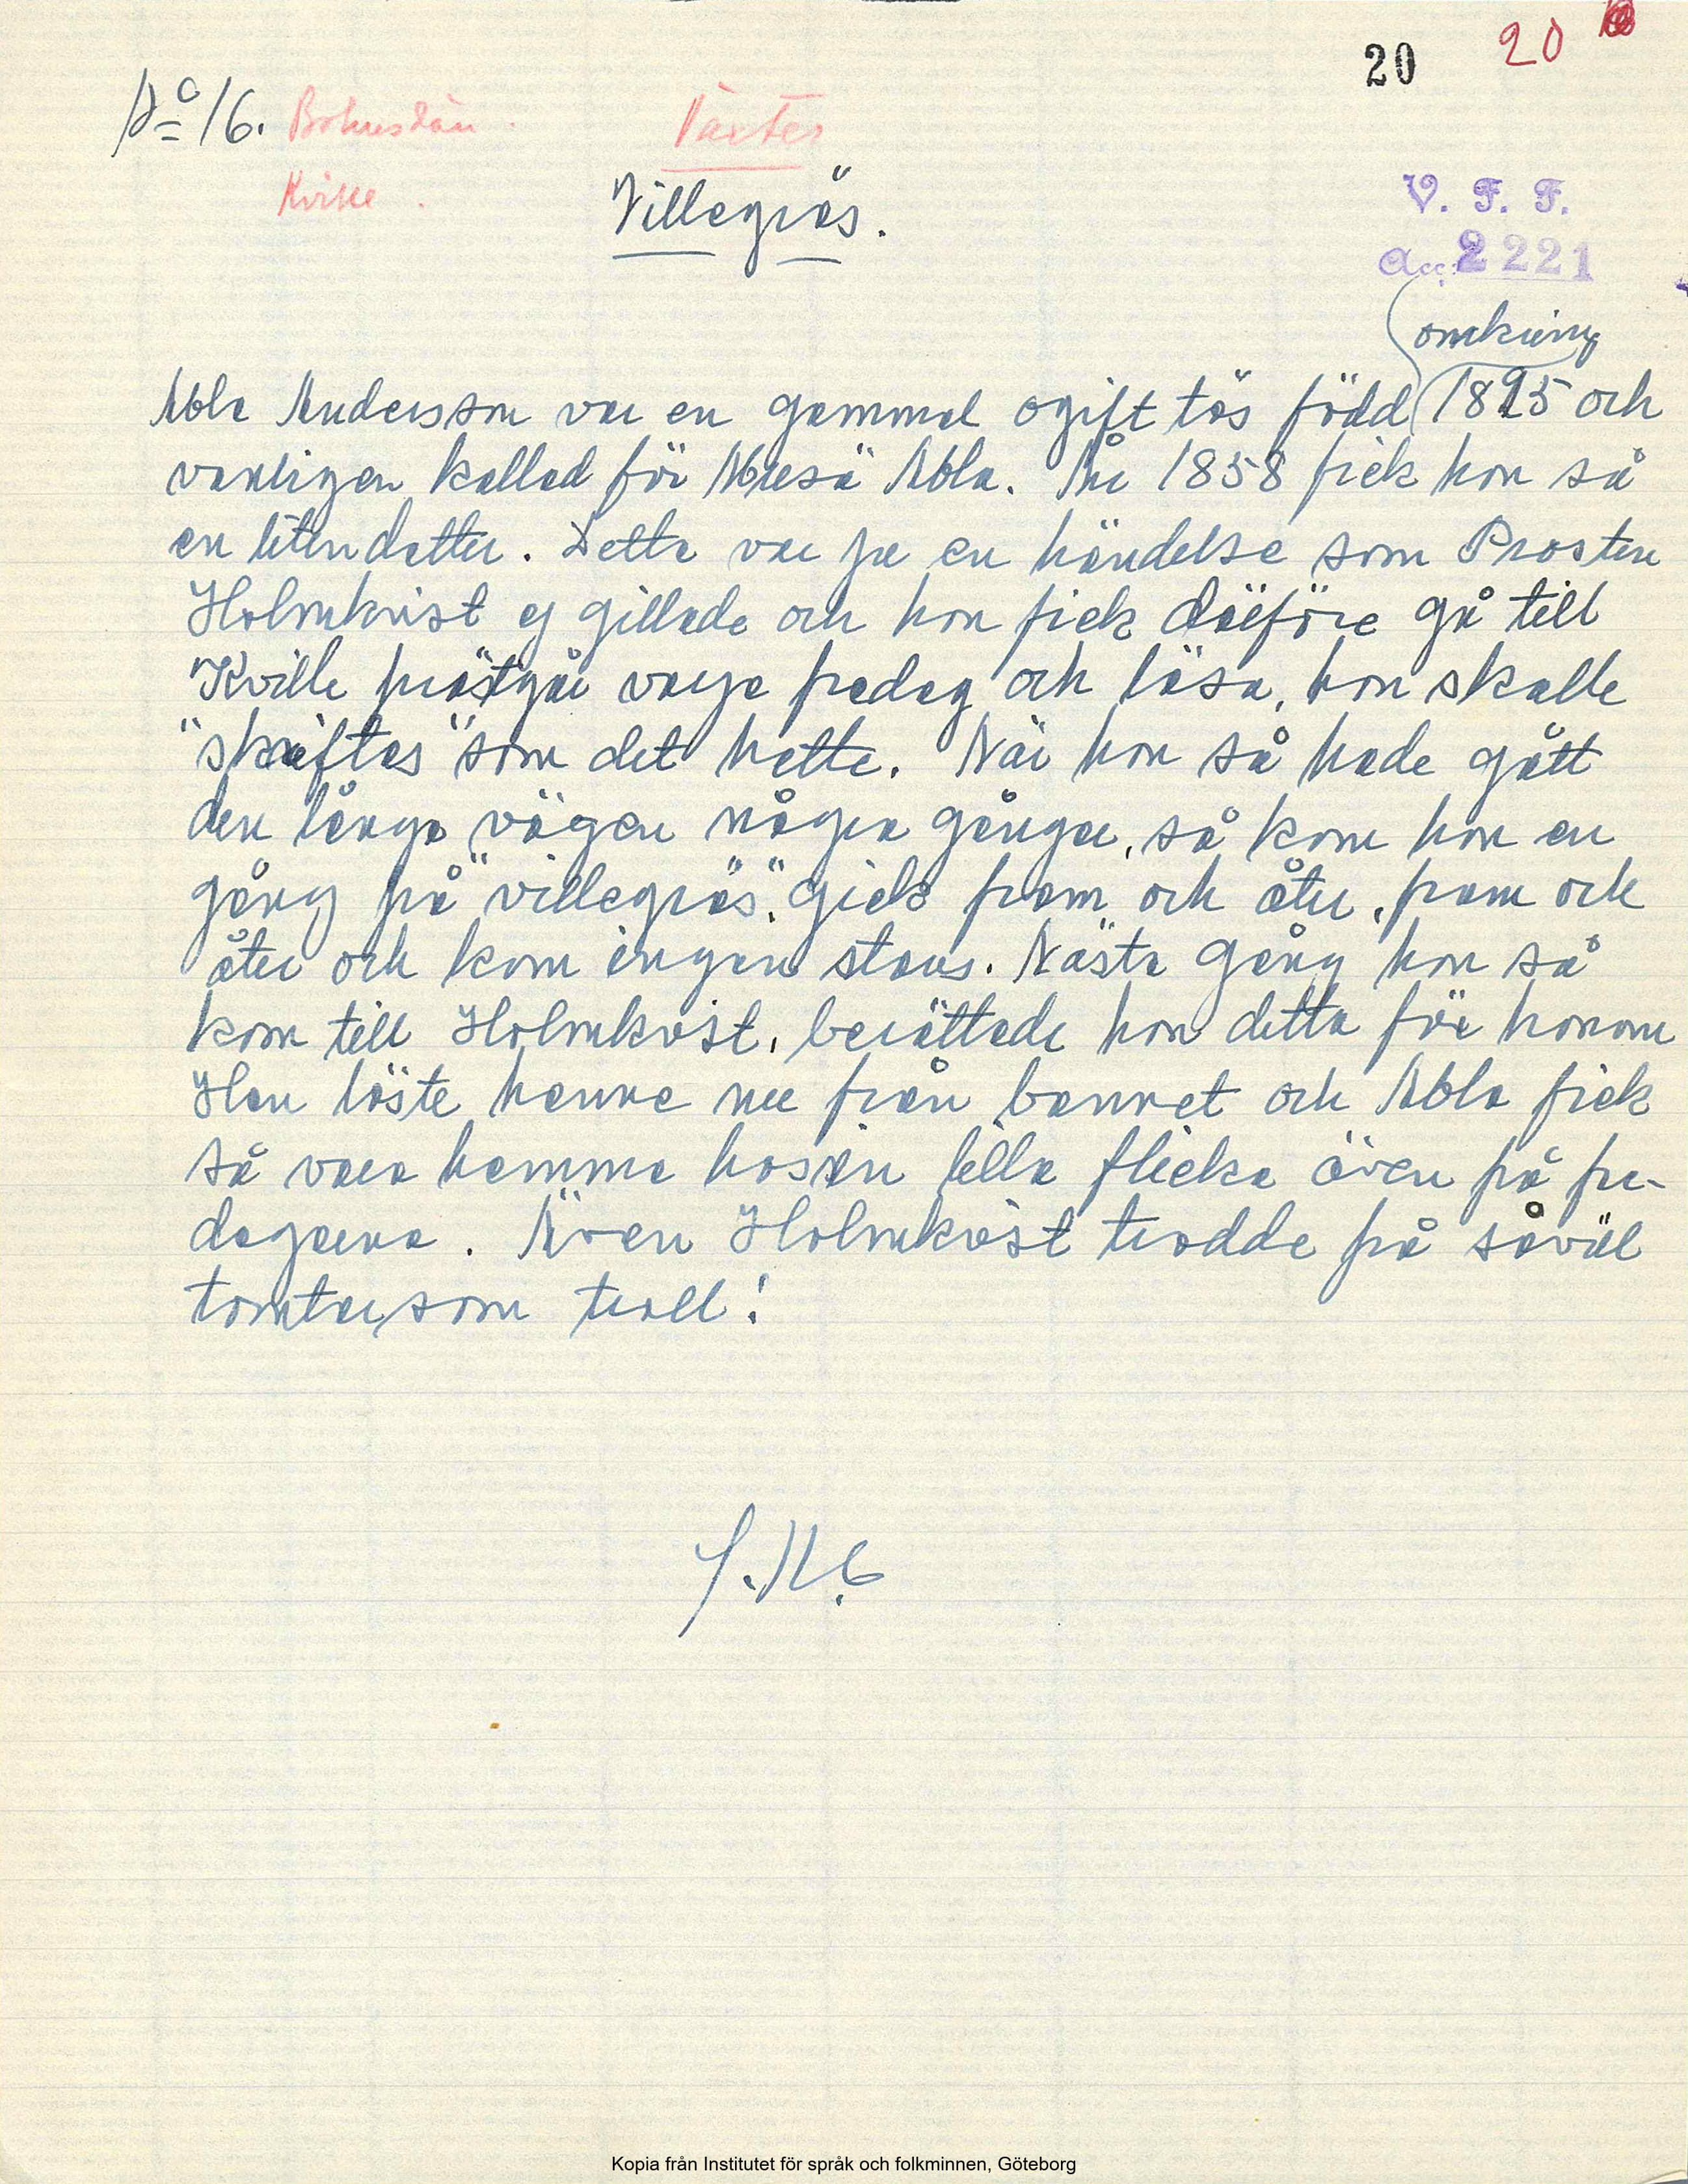 20 20
No 16. Bohuslän. Växter
Kville.
Villegräs.
V. F. F.
Acc. 2221
omkring
Abla Andersson var en gammal ogift tös född 1825 och
vanligen kallad för Abla. År 1858 fick hon så
en liten dotter. Detta var ju en händelse som Prosten
Holmkvist ej gillade och hon fick därföre gå till
Kville prästgår varje fredag och läsa, hon skulle
"skriftas" som det hette. När hon så hade gått
den långa vägen några gånger, så kom hon en
gång på "villegräs". Gick fram och åter, fram och
åter och kom ingen stans. Nästa gång hon så
kom till Holmkvist, berättade hon detta för honom
Han löste henne nu från bannet och Abla fick
så vara hemma hos sin lilla flicka även på fre-
dagarna. Även Holmkvist trodde på såväl
tomtar som troll!
Kopia från Institutet för språk och folkminnen, Göteborg